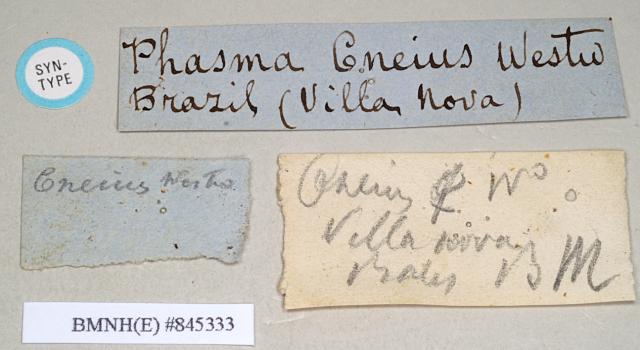 SYN-
TYPE
Phasma Cneius Westw
Brazil (Villa Nova)
Cneius Westw
Cneius Wo
Villa nova
Bates B M
BMNH(E) #845333